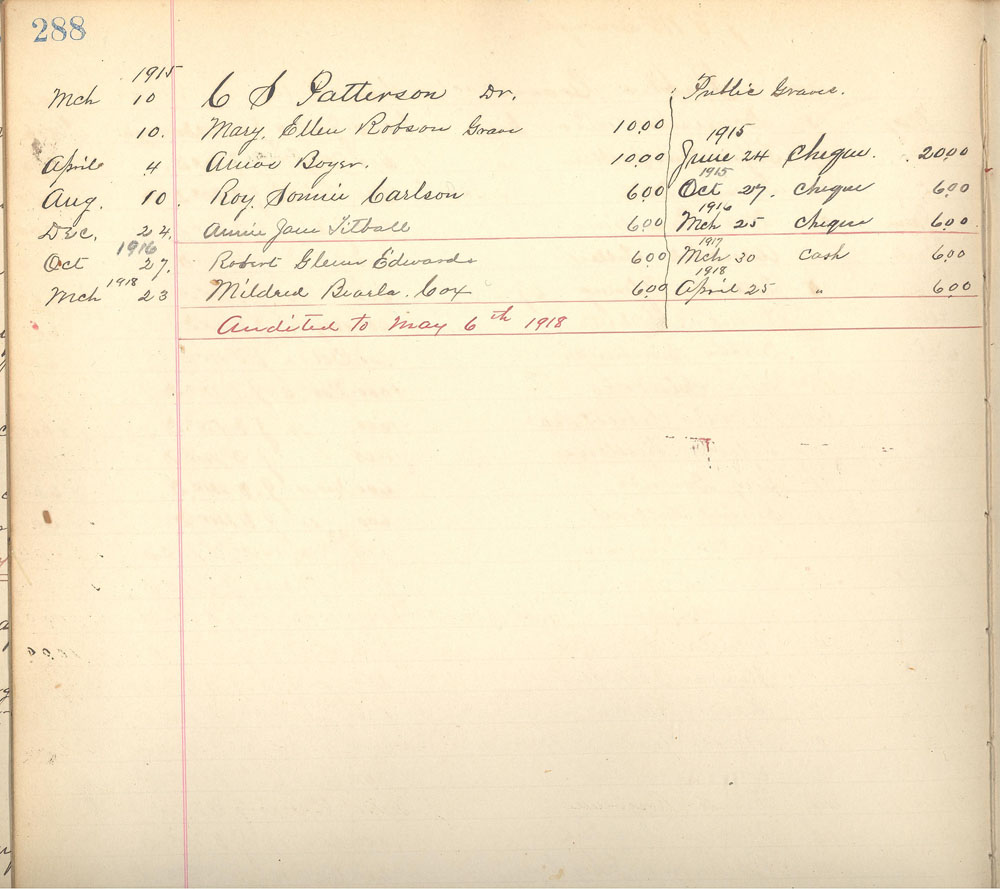 288
1915
Mch 10 C S Patterson Dr. Public Graves.
10. Mary Ellen Robson Grave 10.00 1915
April 4 Annie Boyer. 10.00 June 24 Cheque. 20.00
1915
Aug. 10. Roy Carlson 6.00 Oct 27. Cheque 6.00
1916
Dec. 24. Annie Jane Titball 6.00 Mch 25 Cheque 6.00
1916 1917
Oct 27. Robert Glenn Edwards 6.00 Mch 30 Cash 6.00
1918 1918
Mch 23 Mildred Cox 6.00 April 25 " 6.00
Audited to May 6th 1918